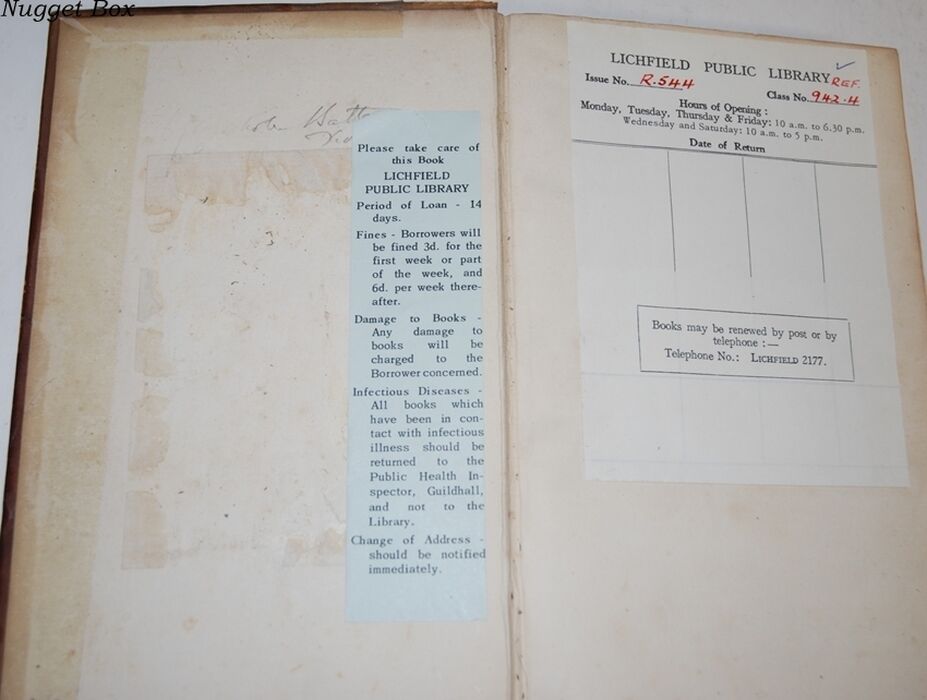 Nugget Box
Please take care of
this Book
LICHFIELD
PUBLIC LIBRARY
Period of Loan - 14
days.
Fines - Borrowers will
be fined 3d. for the
first week or part
of the week, and
6d. per week there-
after.
Damage to Books -
Any damage to
books will be
charged to the
Borrower concerned.
Infectious Diseases -
All books which
have been in con-
tact with infectious
illness should be
returned to the
Public Health In-
spector, Guildhall,
and not to the
Library.
Change of Address -
should be notified
immediately.
LICHFIELD PUBLIC LIBRARY REF.
Issue No. R.544
Class No. 942.4
Hours of Opening :
Monday, Tuesday, Thursday & Friday: 10 a.m. to 6.30 p.m.
Wednesday and Saturday: 10 a.m. to 5 p.m.
Date of Return
Books may be renewed by post or by
telephone :—
Telephone No.: LICHFIELD 2177.